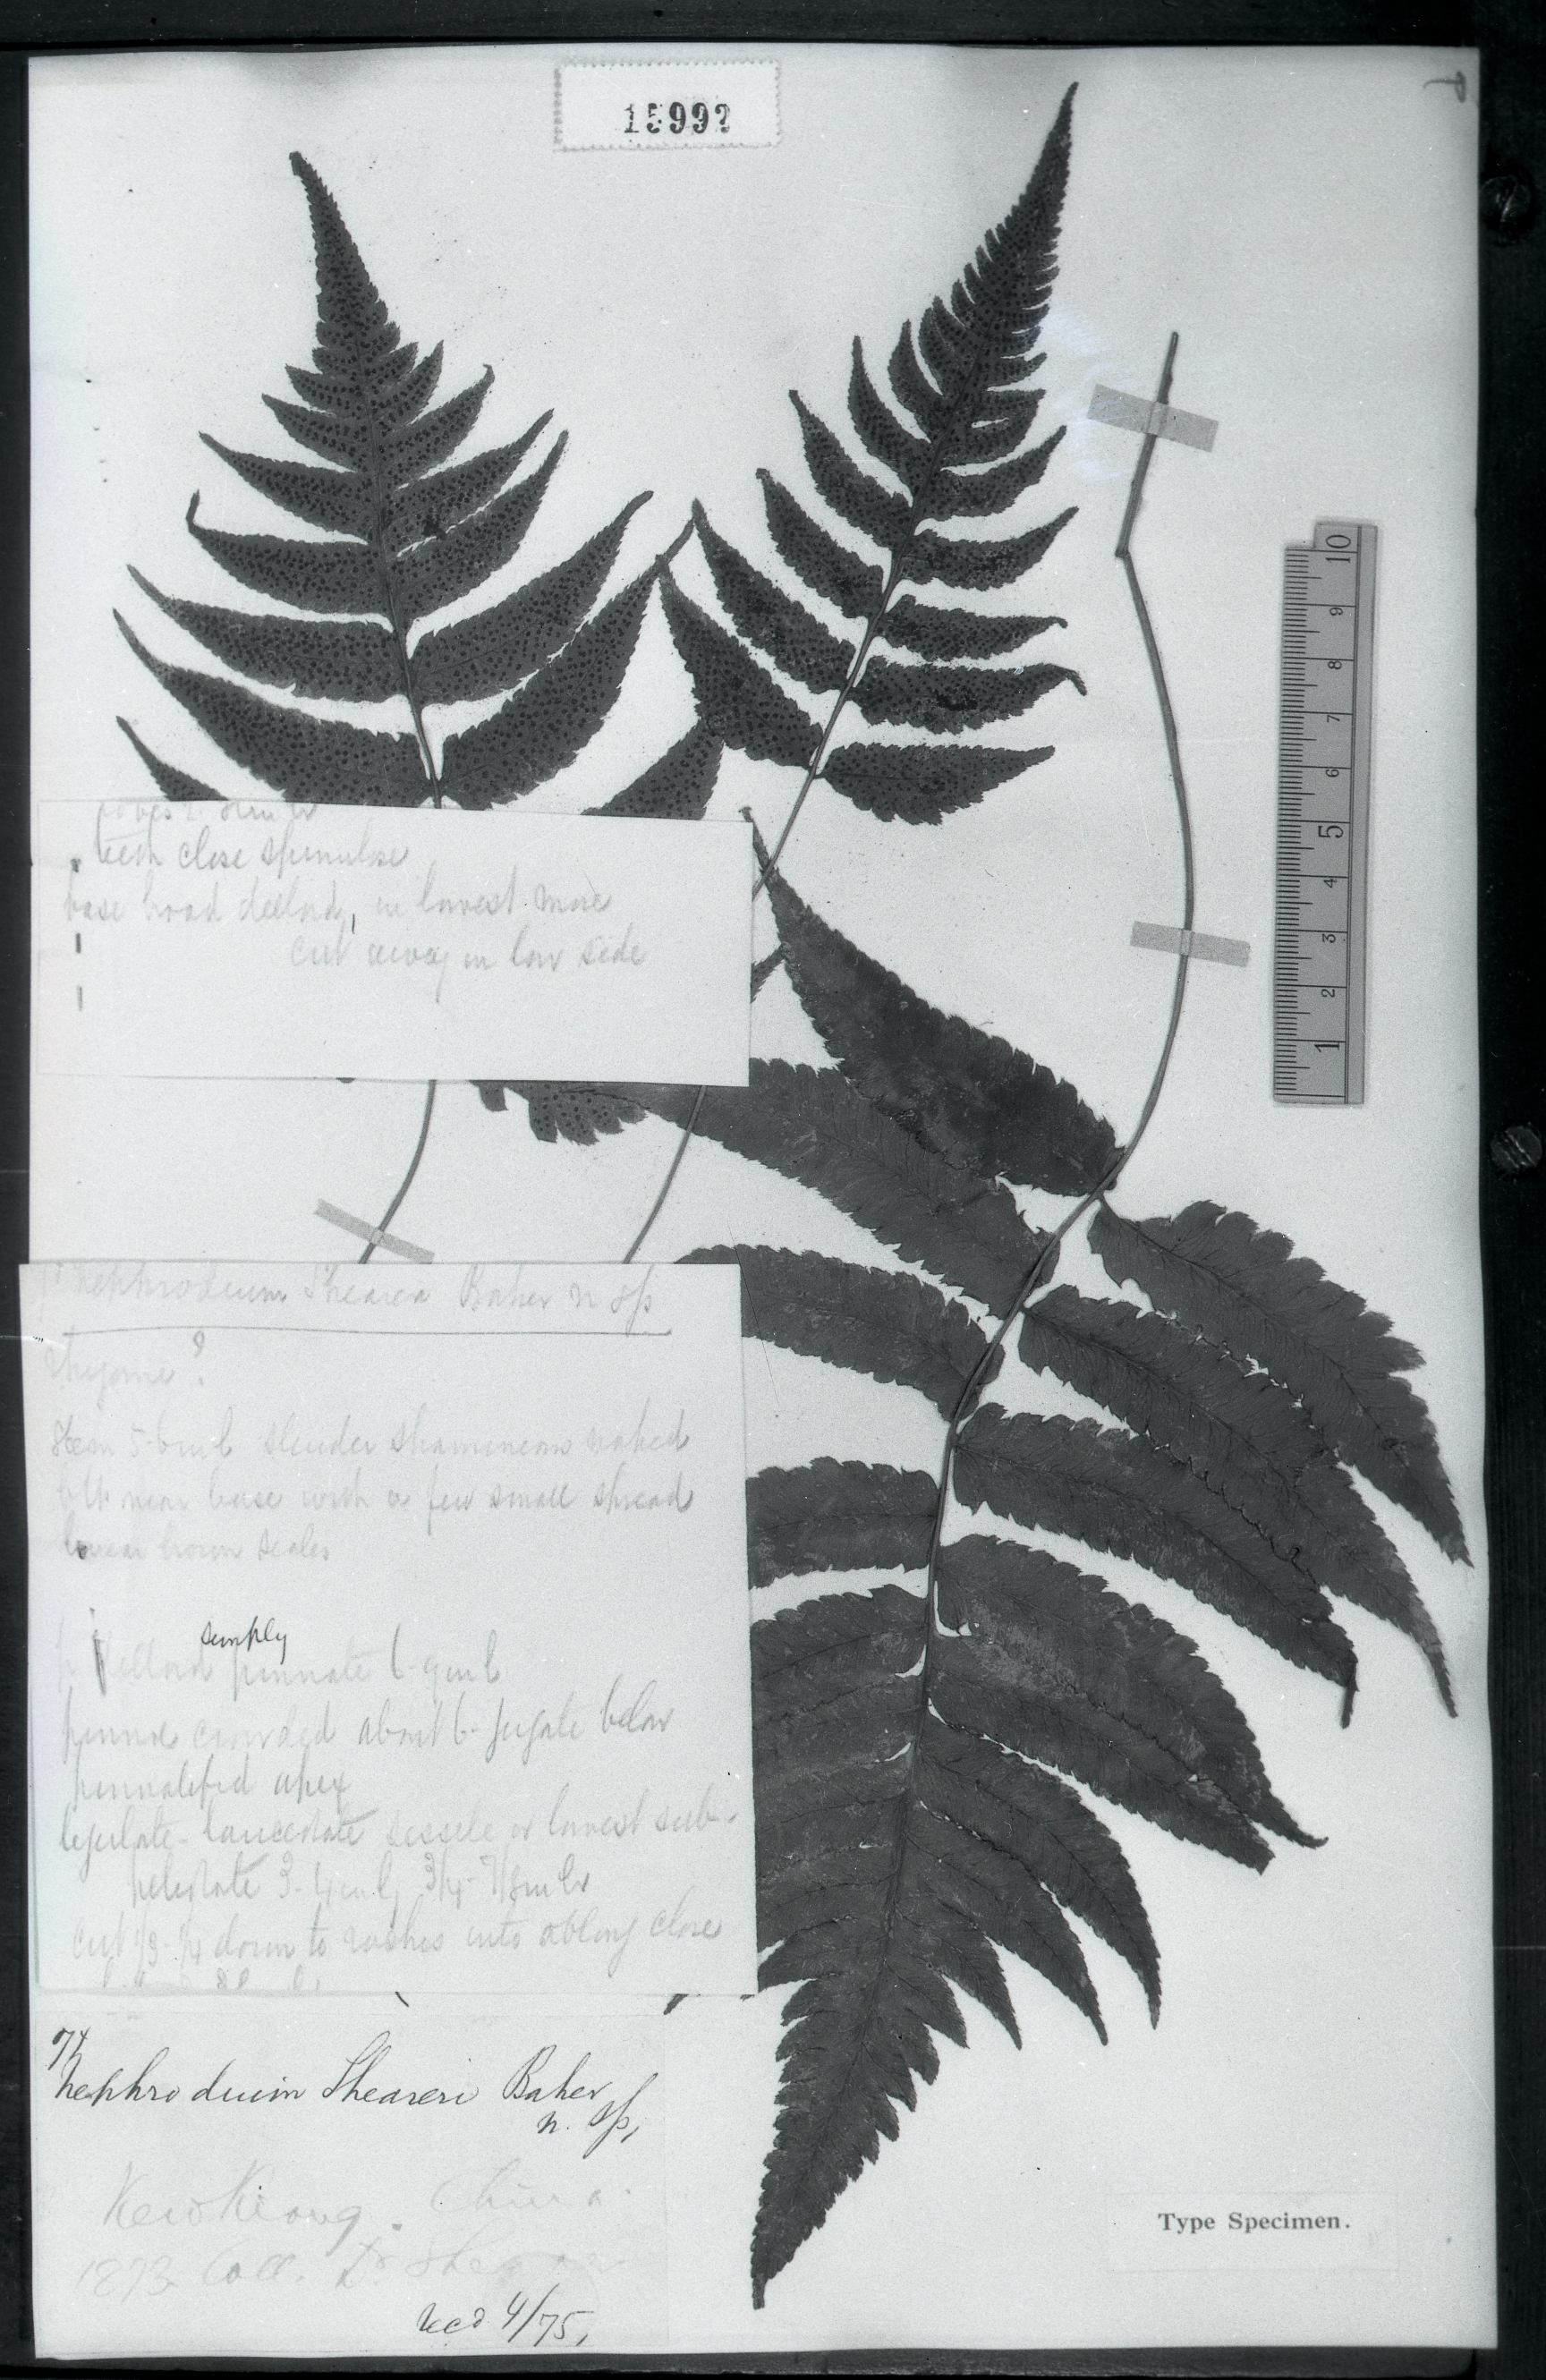 1599?
10
9
8
7
6
5
4
3
2
1
teeth close spinulose
base broad deltoid, in lowest more
cut away in low side
Nephrodium Sheareri Baker n sp
rhizome ?
Stem 5-6 in l slender stramineous naked
but near base with a few small spread
linear brown scales
simply
deltoid pinnate 6-9 in l
pinnae crowded about 6-jugate below
pinnatifid apex
ligulate-lanceolate sessile or lowest sub-
petiolate 3-4 in l, 3/4-7/8 in br
cut 1/3-1/4 down to rachis into oblong close
74
Nephrodium Sheareri Baker
n. sp,
KewKiang. China.
1873. Coll. Dr Shearer
recd 4/75,
Type Specimen.